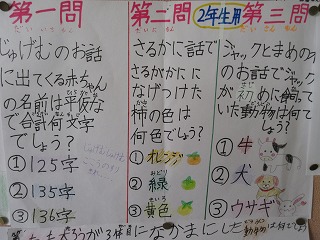 第一問
だいいちもん
じゅげむのお話
に出てくる赤ちゃん
の名前は平仮名
で合計何文字
でしょう?
①125字
②135字
③136字
第二問
だいにもん
さるかに話で
さるがかに に
なげつけた
柿の色は
何色でしょう?
①オレンジ
②緑
みどり
③黄色
きいろ
2年生用
第三問
だいさんもん
ジャックとまめの木
のお話でジャック
が初めに飼って
いた動物は何でしょう?
①牛
②犬
③ウサギ